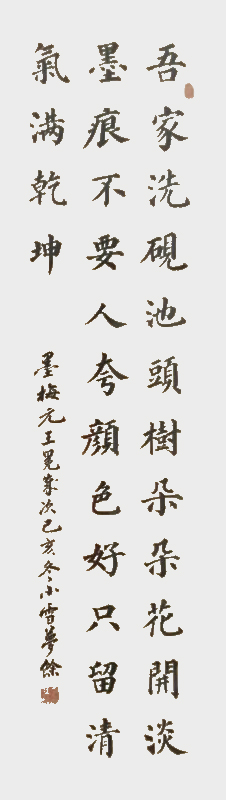 吾家洗硯池頭樹朵朵花開淡
墨痕不要人夸顔色好只留清
氣满乾坤
墨梅元王冕歲次己亥冬小雪夢餘